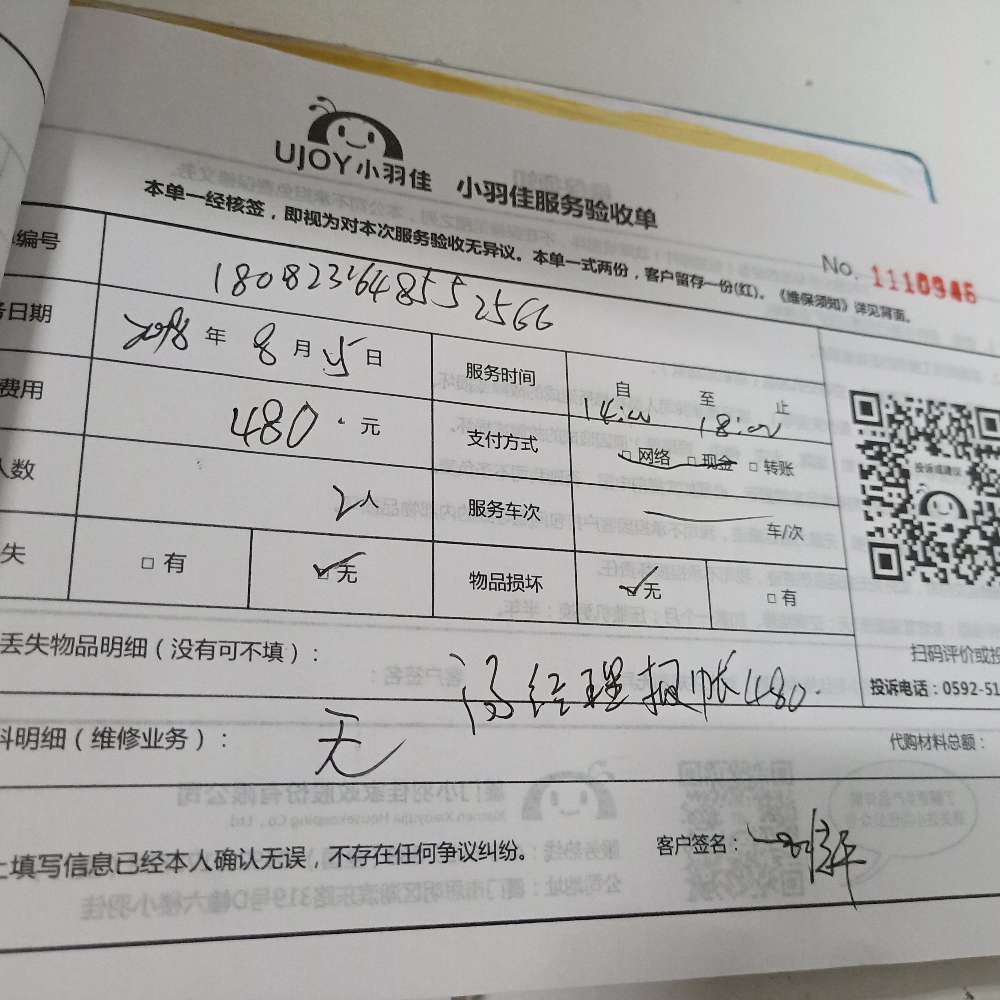 UJOY小羽佳 小羽佳服务验收单
本单一经核签，即视为对本次服务验收无异议。本单一式两份，客户留存一份(红)。《维保须知》详见背面。
No. 1110946
编号 180823648552566
日期 2018年 8月 日
费用 480.元 服务时间 自 14:00 至 18:00 止
支付方式 □网络 □现金 □转账
人数 2人 服务车次 车/次
失 □有 ☑无 物品损坏 ☑无 □有
投诉或建议
扫码评价或投
投诉电话：0592-51
丢失物品明细（没有可不填）：
经理报帐480.
料明细（维修业务）： 无 代购材料总额：
上填写信息已经本人确认无误，不存在任何争议纠纷。 客户签名：